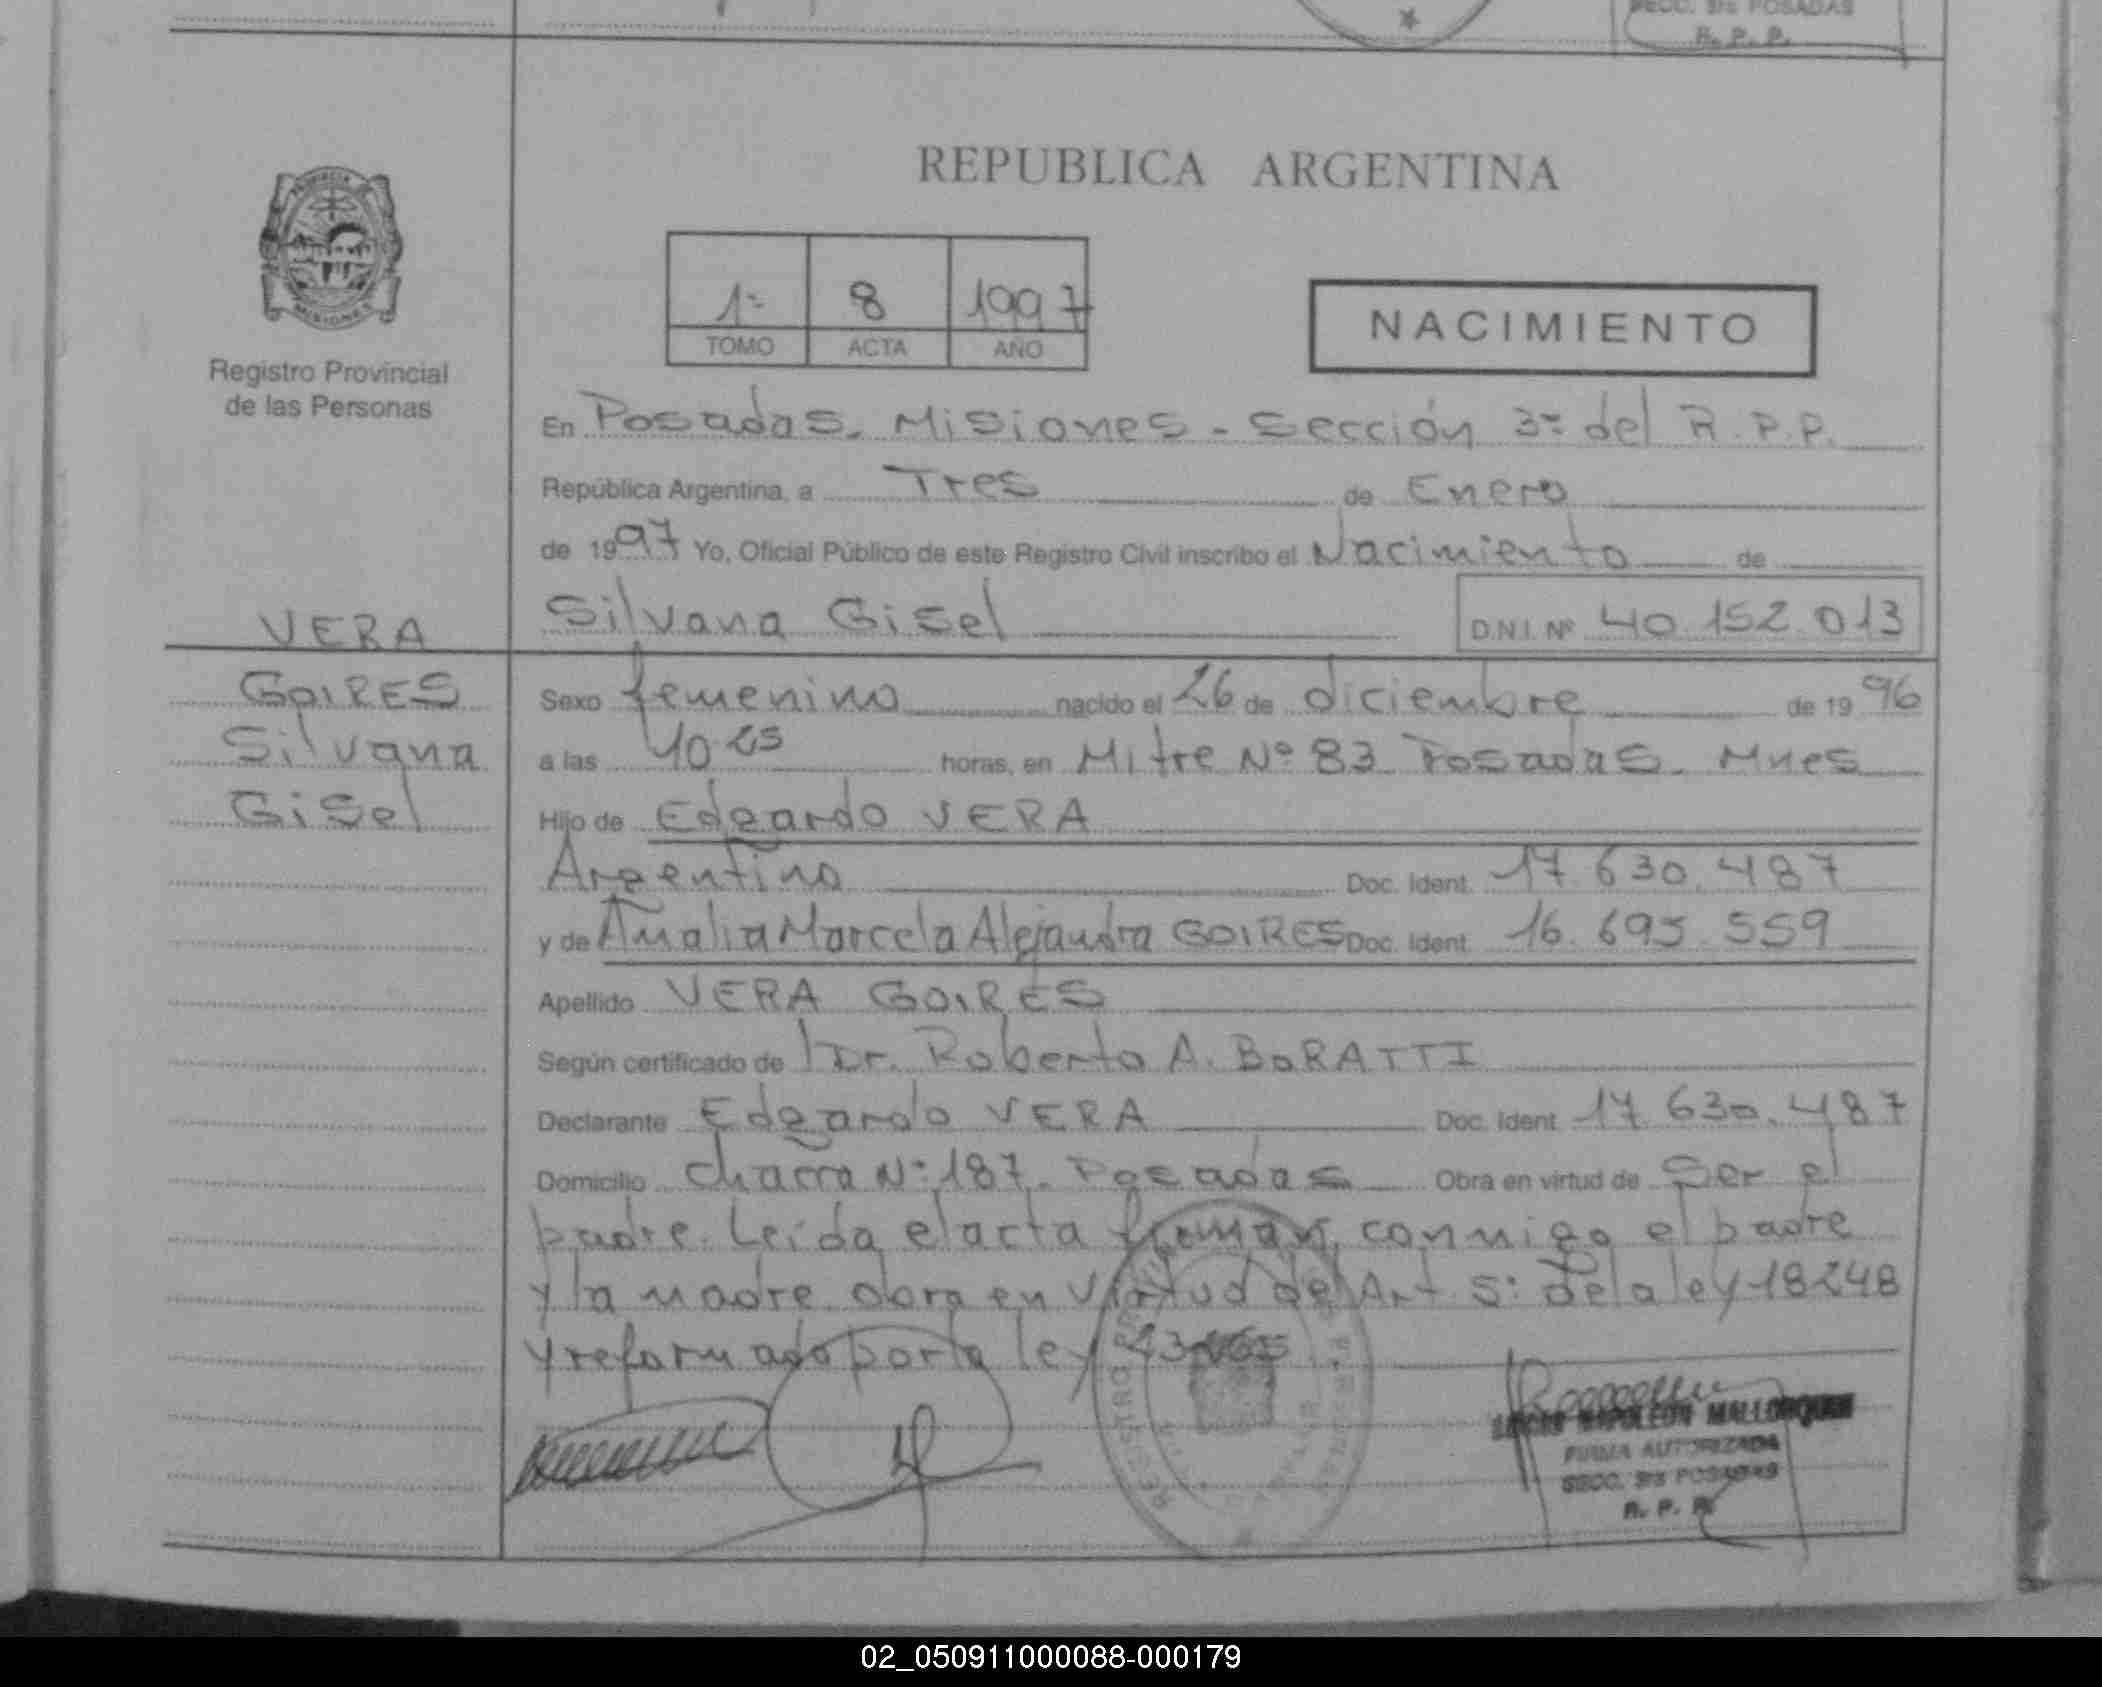 SECC. 3ra POSADAS
R. P. P.
PROVINCIA DE
MISIONES
Registro Provincial
de las Personas
REPUBLICA ARGENTINA
1º 8 1997
TOMO ACTA AÑO
NACIMIENTO
En Posadas. Misiones - Sección 3º del R.P.P.
República Argentina, a Tres de Enero
de 1997 Yo, Oficial Público de este Registro Civil inscribo el Nacimiento de
Silvana Gisel D.N.I. Nº 40.152.013
VERA
GOIRES
Silvana
Gisel
Sexo femenino nacido el 26 de diciembre de 1996
a las 10.25 horas, en Mitre Nº 83 Posadas. Mnes
Hijo de Edgardo VERA
Argentino Doc. Ident. 17.630.487
y de Amalia Marcela Alejandra GOIRES Doc. Ident. 16.695.559
Apellido VERA GOIRES
Según certificado de Dr. Roberto A. BORATTI
Declarante Edgardo VERA Doc. Ident. 17.630.487
Domicilio chacra Nº 187. Posadas Obra en virtud de Ser el
padre. Leída el acta firman conmigo el padre
y la madre obra en virtud del Art 5º de la ley 18248
y reformado por la ley
REGISTRO PROVINCIAL
NAPOLEON
FIRMA AUTORIZADA
SECC. 3ra POSADAS
R. P. P.
02_050911000088-000179